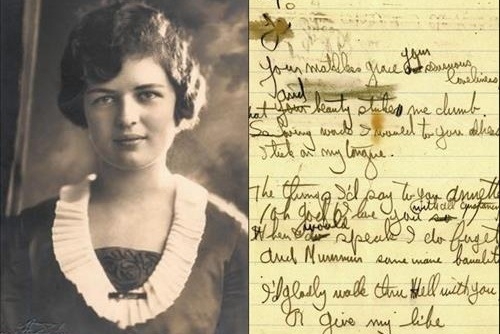 To
Your matchless grace your sensuous
loveliness
And
that your beauty strikes me dumb
So loving words I would to you address
Stick on my tongue.
The things I'd say to you Annette
Oh God I love you so
When I would speak I do forget
And Murmur some inane banality
I'd gladly walk thru Hell with you
Or give my life